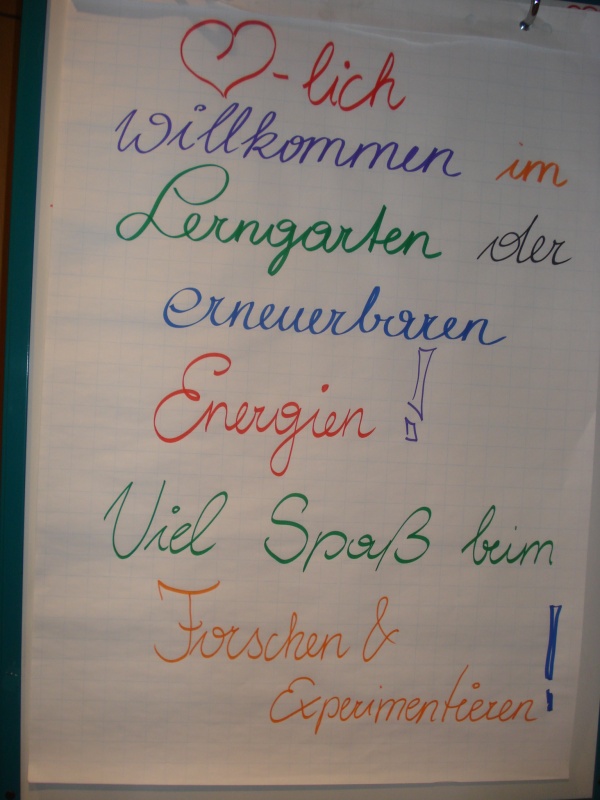 ♡-lich
willkommen im
Lerngarten der
erneuerbaren
Energien!
Viel Spaß beim
Forschen &
Experimentieren!